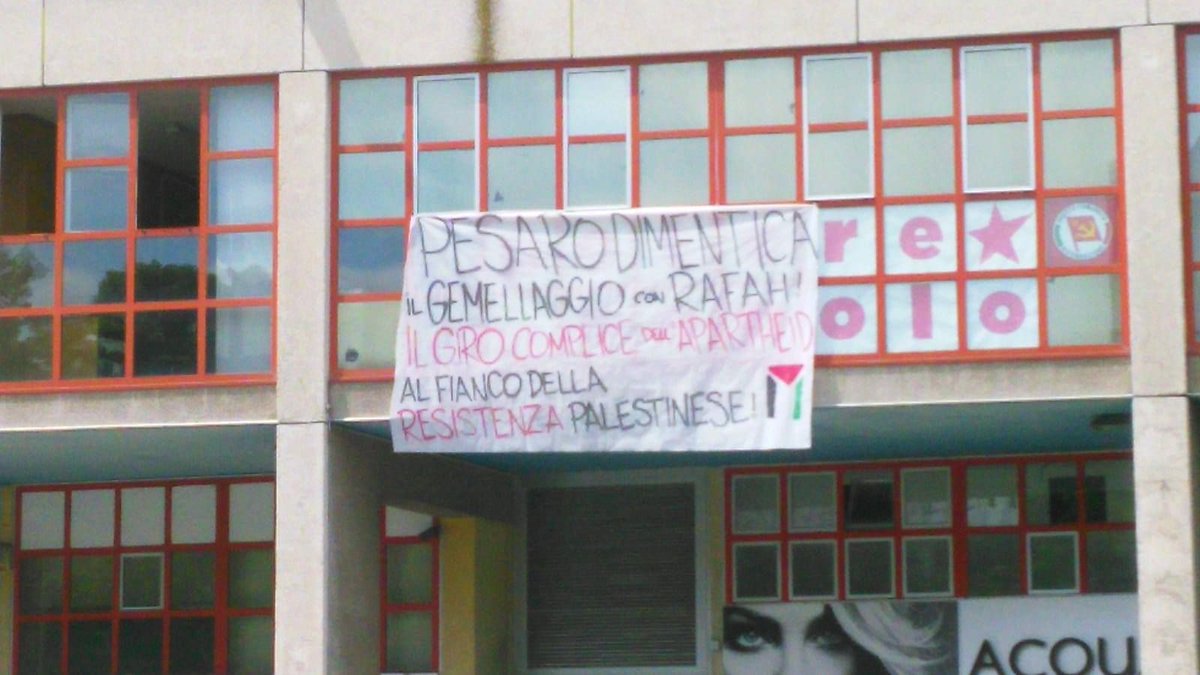 PESARO DIMENTICA
IL GEMELLAGGIO CON RAFAH!
IL GIRO COMPLICE DELL'APARTHEID
AL FIANCO DELLA
RESISTENZA PALESTINESE!
re
olo
ACQU